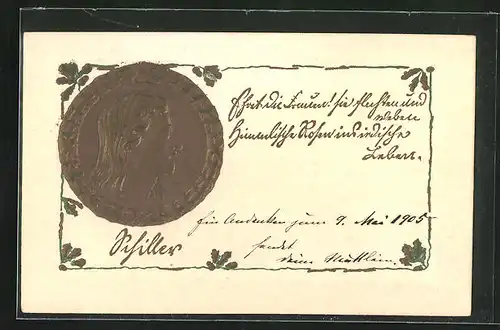 Ehret die Frauen! sie flechten und
weben
Himmlische Rosen ins irdische
Leben.
Ein Andenken zum 9. Mai 1905
sendet
deine
Schiller